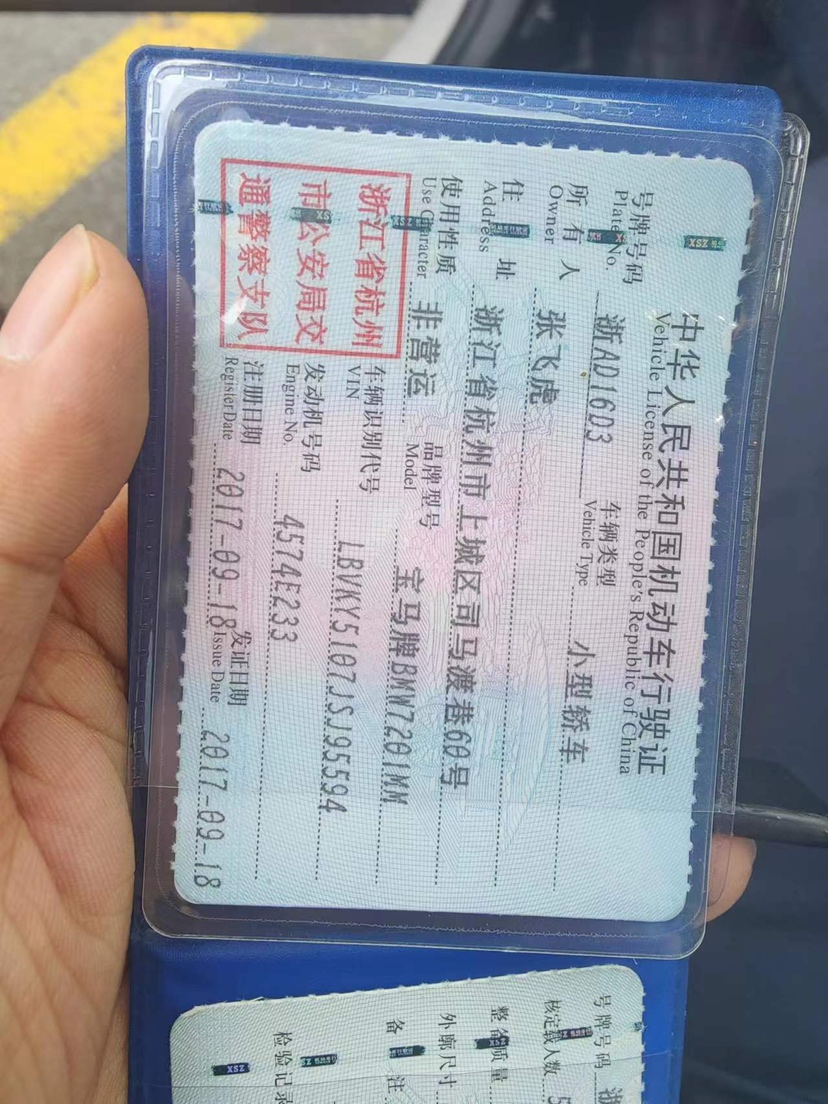 中华人民共和国机动车行驶证
Vehicle License of the People's Republic of China
号牌号码 浙AD16D3 车辆类型 小型轿车
Plate No. Vehicle Type
所有人 张飞虎
Owner
住址 浙江省杭州市上城区司马渡巷60号
Address
使用性质 非营运 品牌型号 宝马牌BMW7201MM
Use Character Model
浙江省杭州
市公安局交
通警察支队
车辆识别代号 LBVKY5107JSJ95594
VIN
发动机号码 4574E233
Engine No.
注册日期 2017-09-18 发证日期 2017-09-18
Register Date Issue Date
号牌号码 浙
核定载人数 5
整备质量
外廓尺寸
备注
检验记录